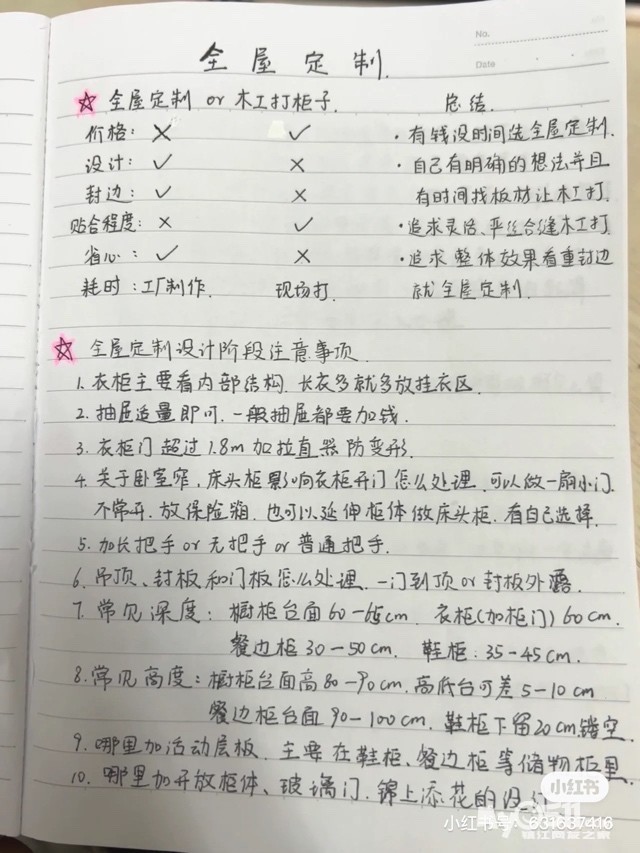 No.
Date
全屋定制.
☆ 全屋定制 or 木工打柜子. 总结.
价格: × ✓ ·有钱没时间选全屋定制.
设计: ✓ × ·自己有明确的想法并且
封边: ✓ × 有时间找板材让木工打.
贴合程度: × ✓ ·追求灵活、严丝合缝木工打.
省心: ✓ × ·追求整体效果看重封边
耗时: 工厂制作. 现场打. 就全屋定制.
☆ 全屋定制设计阶段注意事项.
1. 衣柜主要看内部结构. 长衣多就多放挂衣区.
2. 抽屉适量即可. 一般抽屉都要加钱.
3. 衣柜门超过1.8m加拉直器防变形.
4. 关于卧室窄, 床头柜影响衣柜开门怎么处理. 可以做一扇小门.
不常开. 放保险箱. 也可以延伸柜体做床头柜. 看自己选择.
5. 加长把手 or 无把手 or 普通把手.
6. 吊顶、封板和门板怎么处理. 一门到顶 or 封板外露.
7. 常见深度: 橱柜台面60-65cm. 衣柜(加柜门)60cm.
餐边柜30-50cm. 鞋柜: 35-45cm.
8. 常见高度: 橱柜台面高80-90cm. 高低台可差5-10cm
餐边柜台面90-100cm. 鞋柜下留20cm镂空.
9. 哪里加活动层板. 主要在鞋柜、餐边柜等储物柜里.
10. 哪里加开放柜体、玻璃门. 锦上添花的设计
小红书
小红书号: 631637416